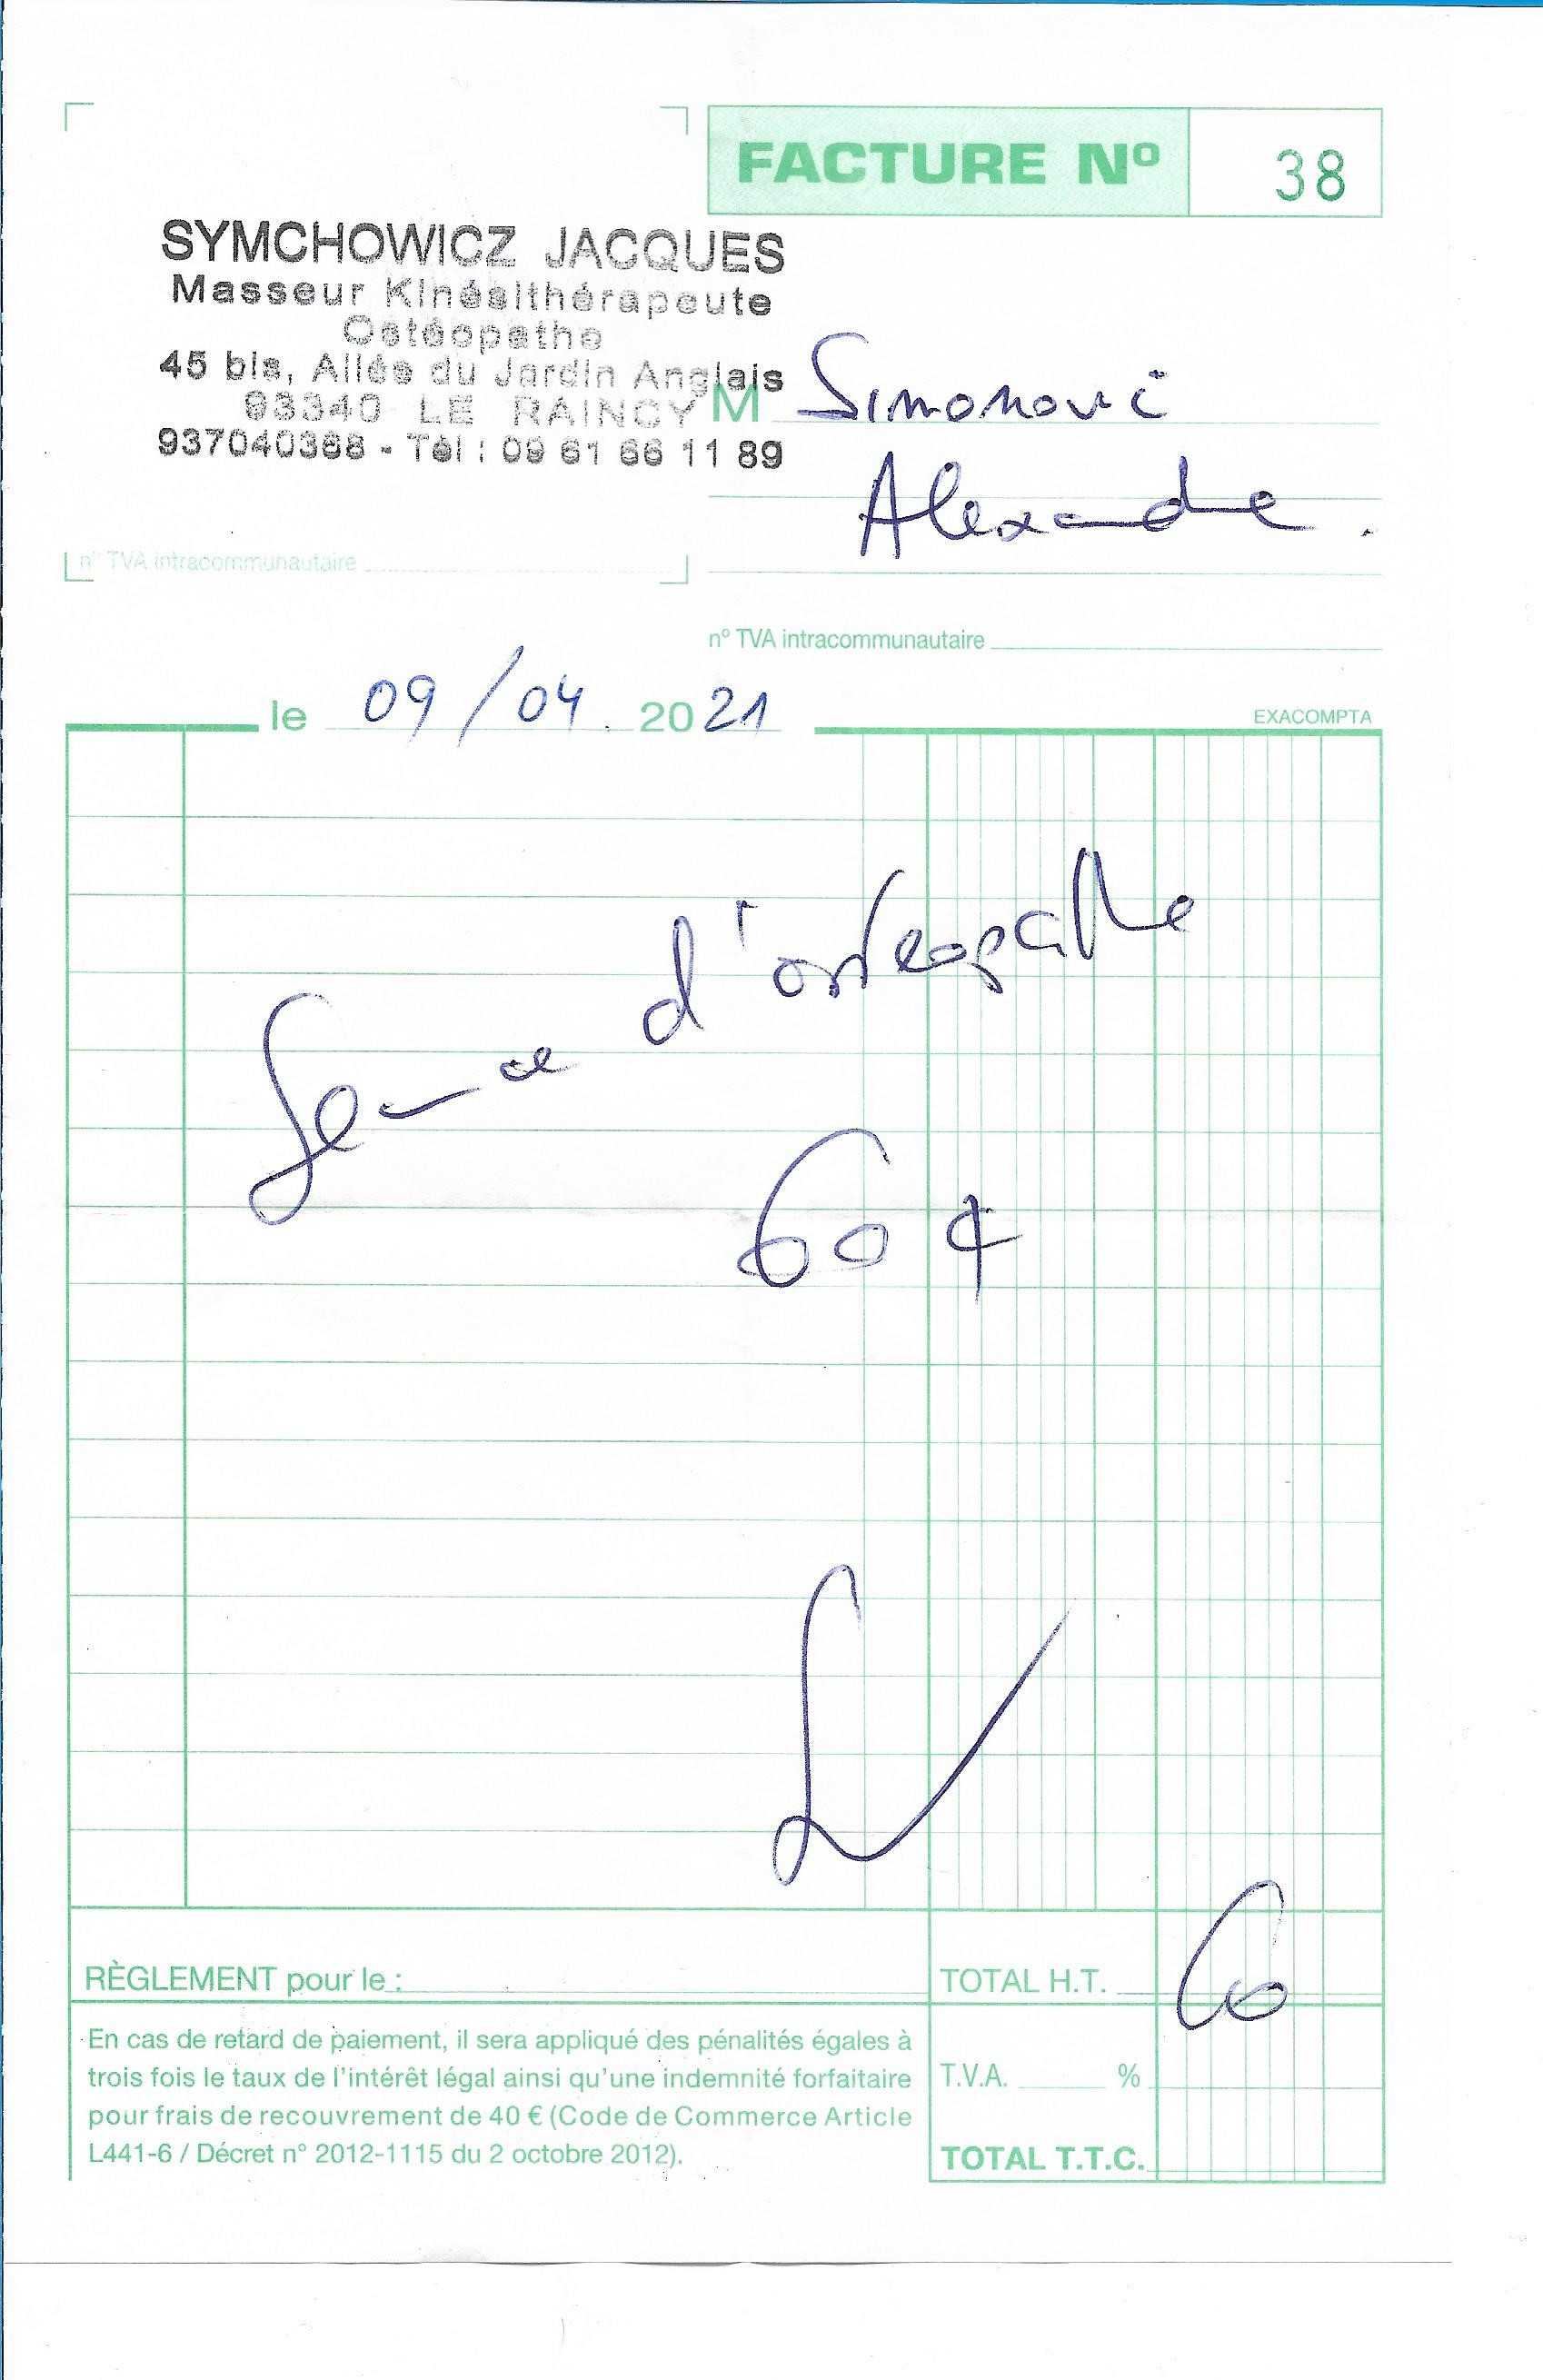 FACTURE Nº 38
SYMCHOWICZ JACQUES
Masseur Kinésithérapeute
Ostéopathe
45 bis, Allée du Jardin Anglais
93340 LE RAINCY
937040368 - Tél : 09 61 66 11 89
M Simonovic
Alexandre.
n° TVA intracommunautaire
n° TVA intracommunautaire
le 09/04 2021
EXACOMPTA
Seance d'osteopathie
60 €
RÈGLEMENT pour le :
TOTAL H.T. 60
En cas de retard de paiement, il sera appliqué des pénalités égales à
trois fois le taux de l'intérêt légal ainsi qu'une indemnité forfaitaire
pour frais de recouvrement de 40 € (Code de Commerce Article
L441-6 / Décret n° 2012-1115 du 2 octobre 2012).
T.V.A. %
TOTAL T.T.C.